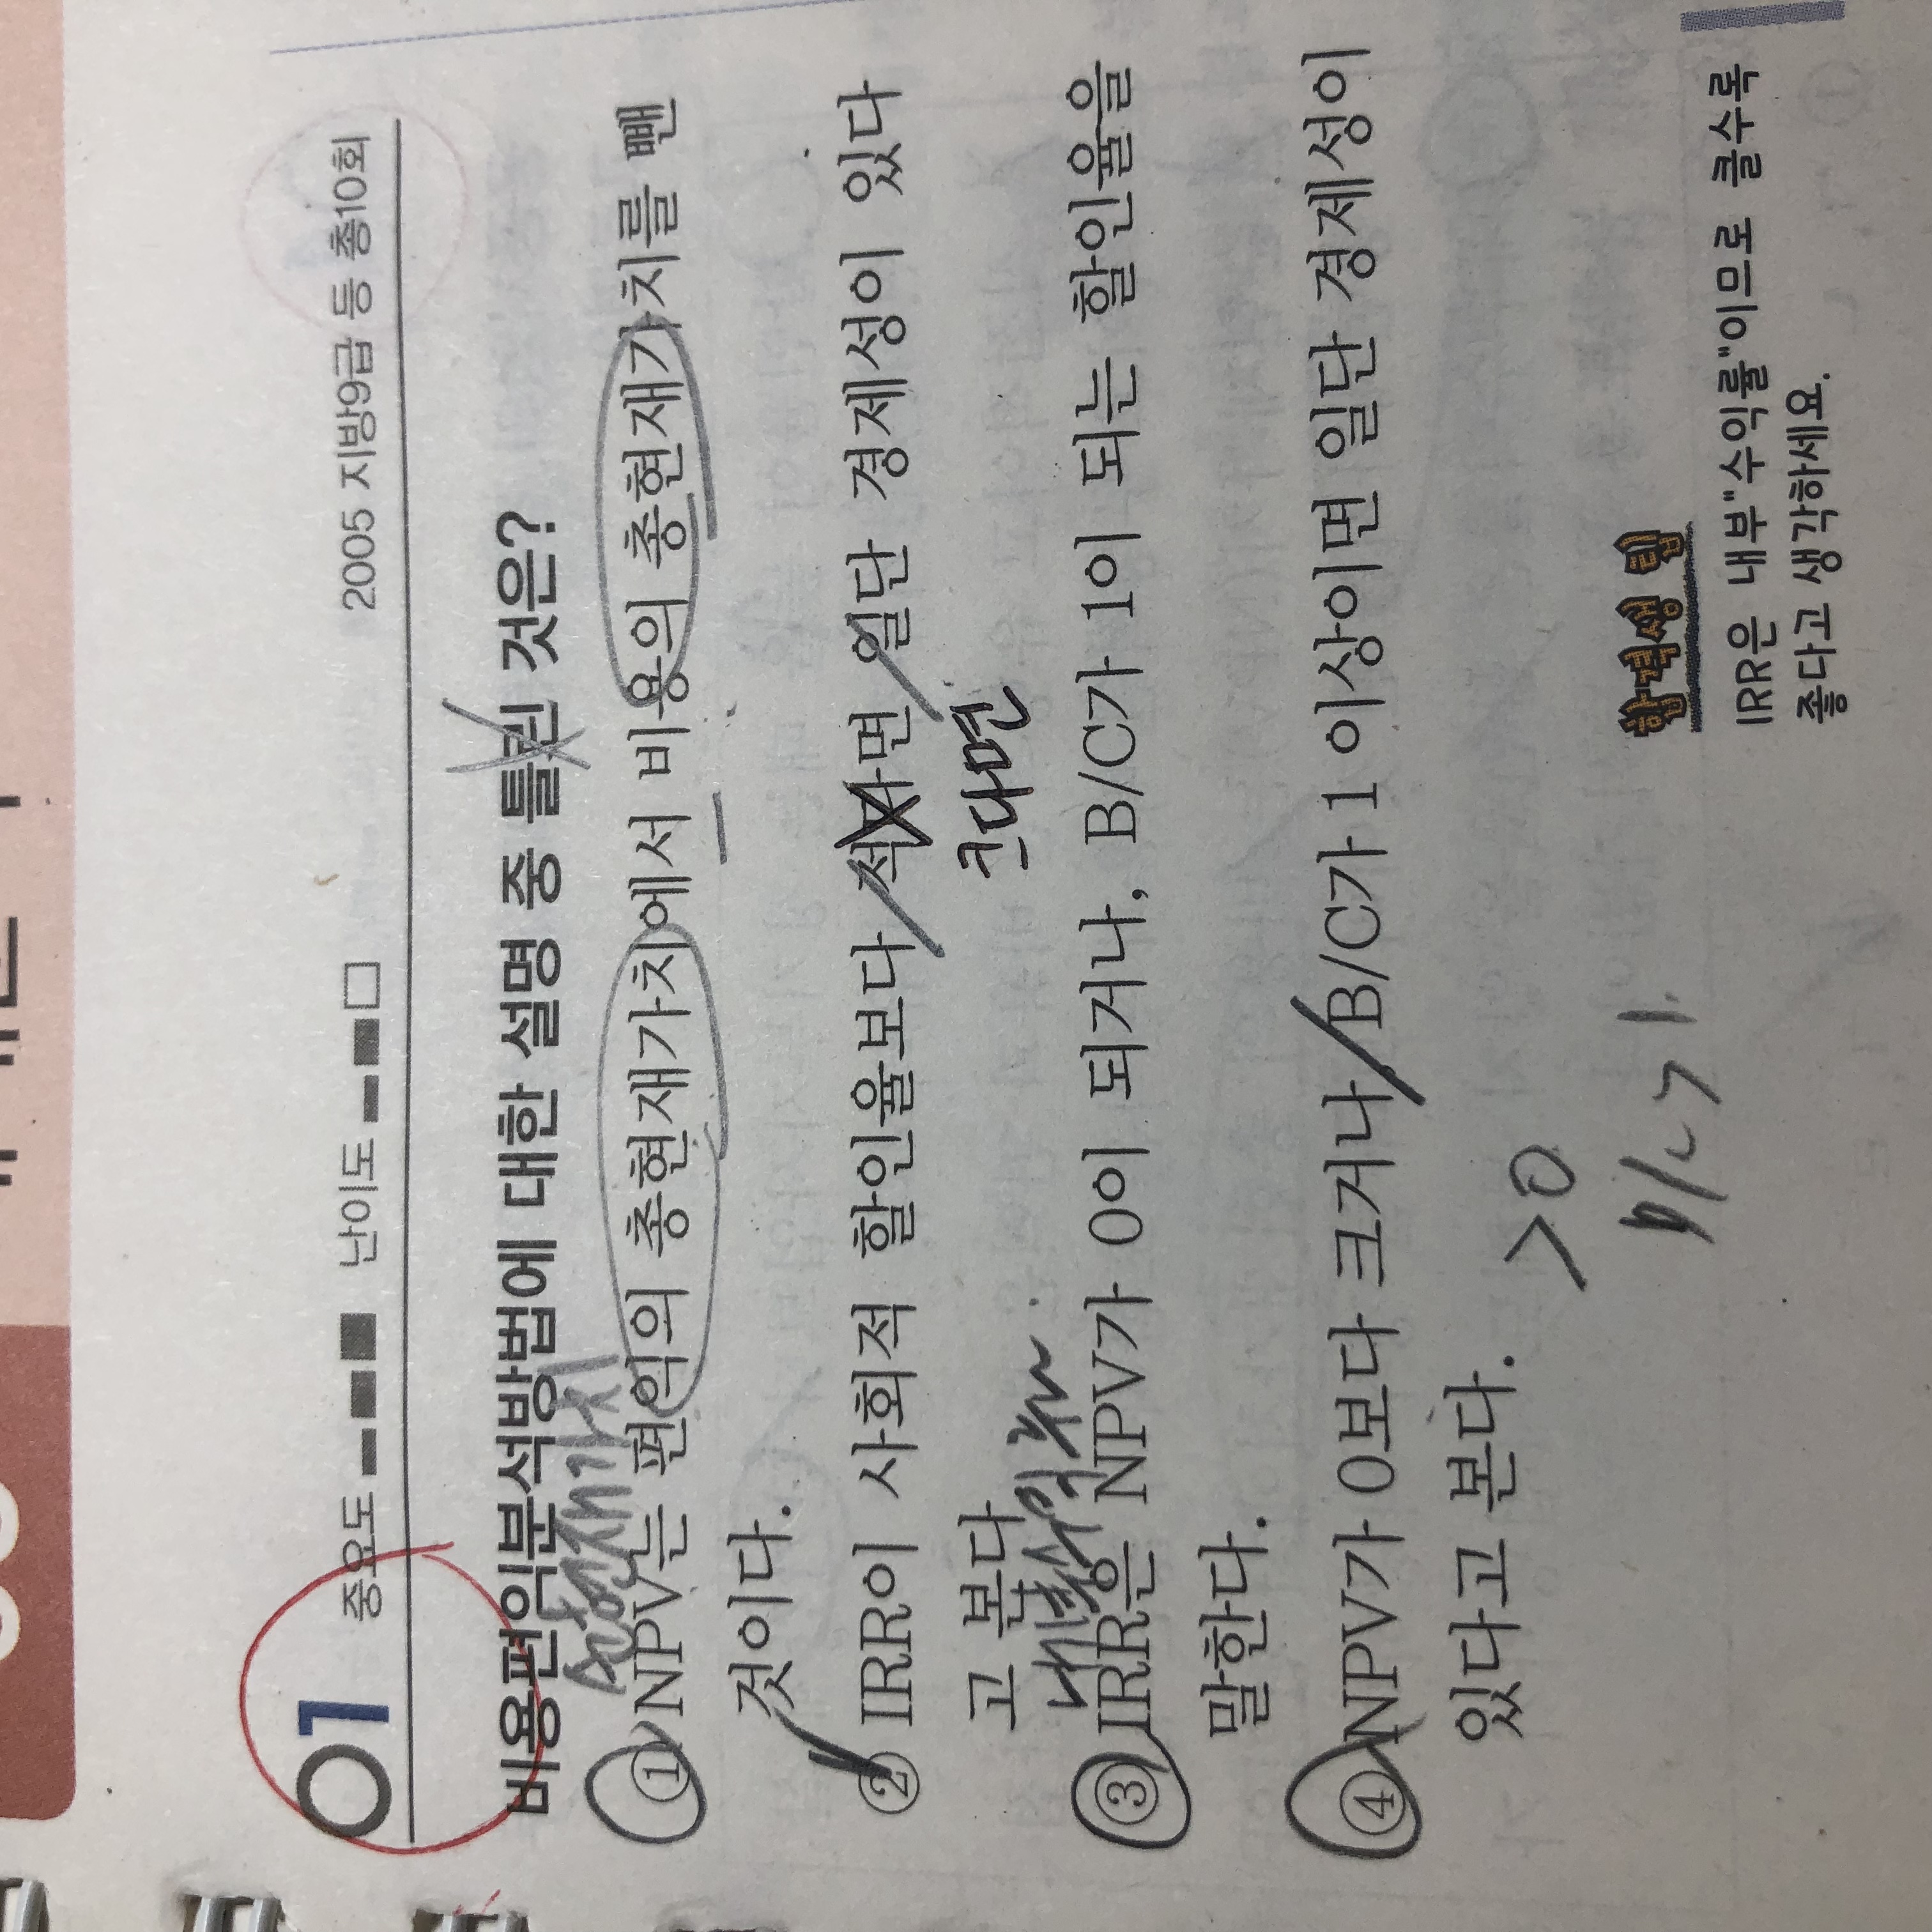 01 중요도 난이도 2005 지방9급 등 총10회
비용편익분석방법에 대한 설명 중 틀린 것은?
순현재가치
① NPV는 편익의 총현재가치에서 비용의 총현재가치를 뺀
것이다.
② IRR이 사회적 할인율보다 적다면 일단 경제성이 있다
고 본다
크다면
내부수익률
③ IRR은 NPV가 0이 되거나, B/C가 1이 되는 할인율을
말한다.
④ NPV가 0보다 크거나 B/C가 1 이상이면 일단 경제성이
있다고 본다.
>0
B/C>1
합격생 팁
IRR은 내부"수익률"이므로 클수록
좋다고 생각하세요.